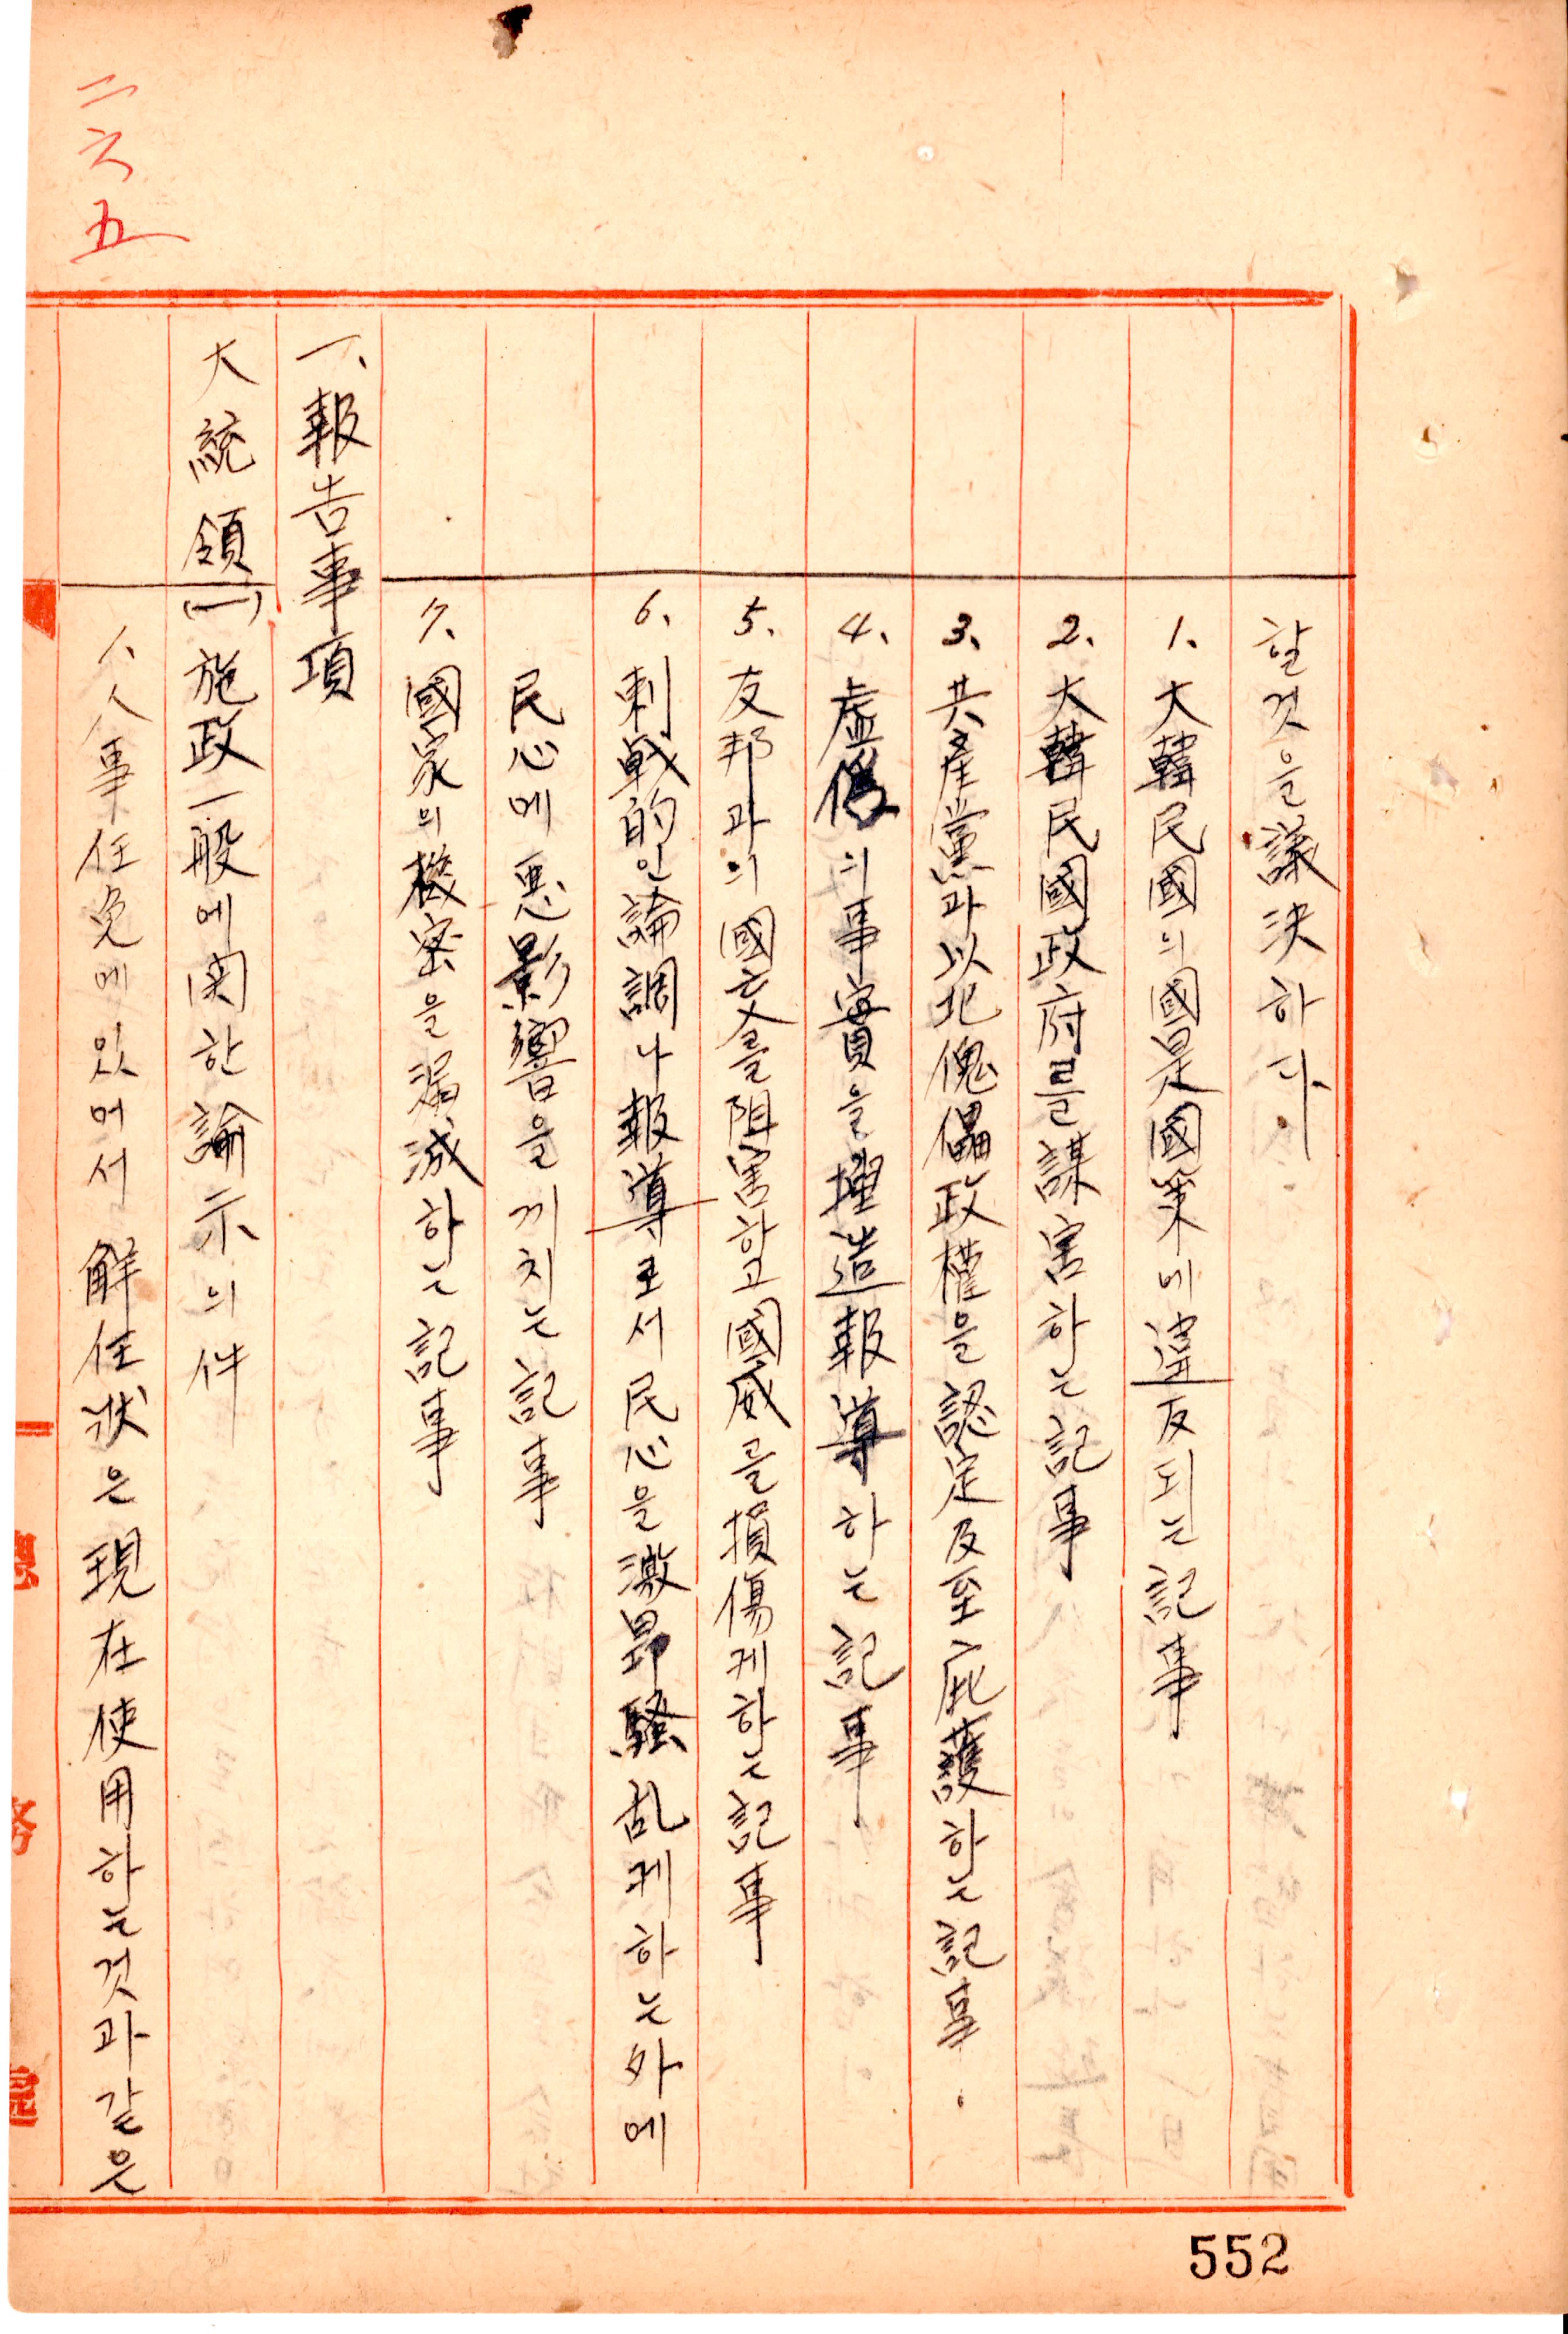 할것을議決하다.
1、大韓民國의國是國策에違反되는記事
2、大韓民國政府를謀害하는記事
3、共産黨과以北傀儡政權을認定及至庇護하는記事.
4、虛僞의事實을捏造報導하는記事
5、友邦과의國交를阻害하고國威를損傷케하는記事
6、刺戟的인論調나報導로서民心을激昻騷乱케하는外에
民心에悪影響을끼치는記事
7、國家의機密을漏洩하는記事
一、報告事項
大統領(一)施政一般에関한諭示의件
1、人事任免에있어서 解任状은現在使用하는것과같은
二六五
552